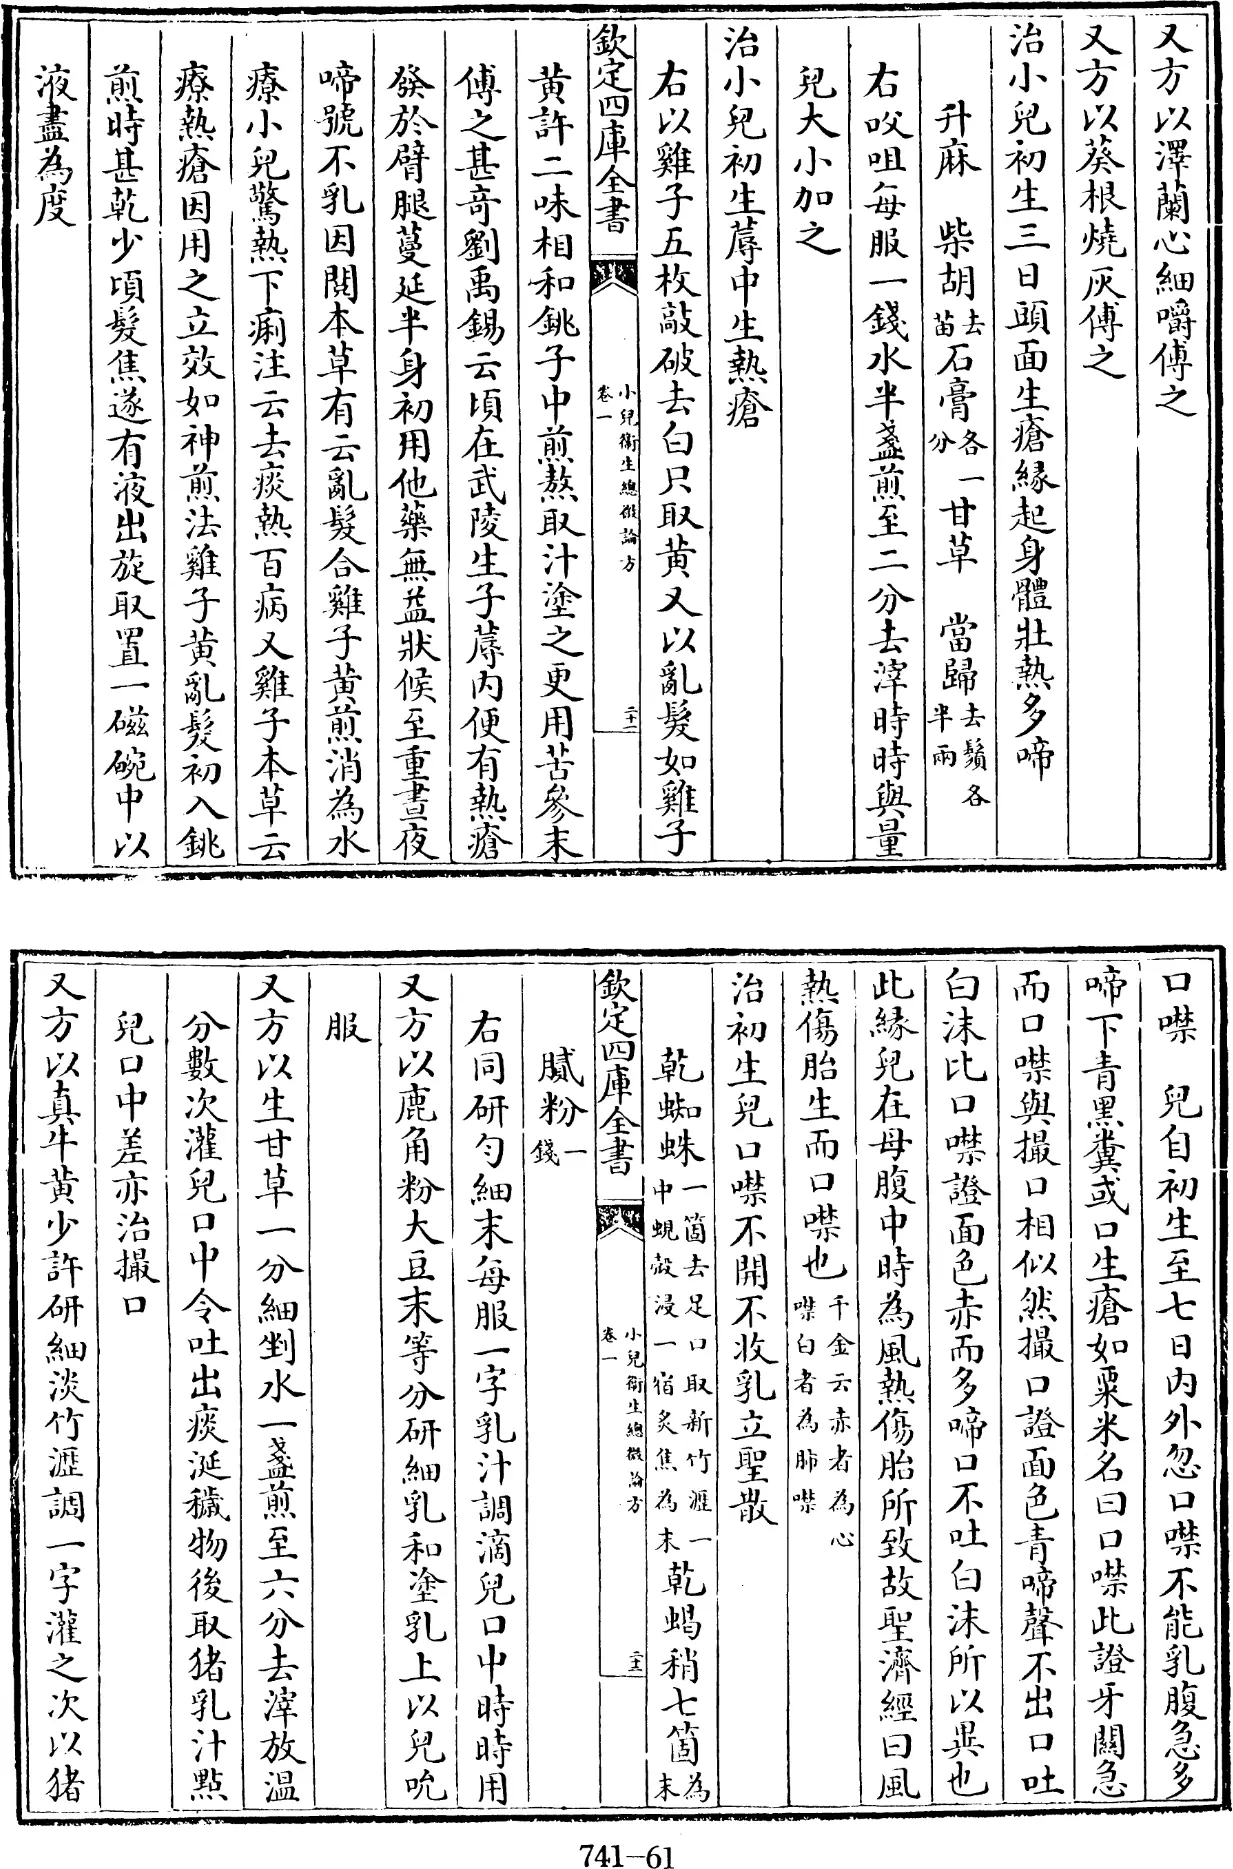 又方以澤蘭心細嚼傅之
又方以葵根燒灰傅之
治小兒初生三日頭面生瘡縁起身體壯熱多啼
升麻 柴胡去苗石膏各一分甘草 當歸去鬚各半兩
右㕮咀每服一錢水半盞煎至二分去滓時時與量
兒大小加之
治小兒初生蓐中生熱瘡
右以雞子五枚敲破去白只取黄又以亂髮如雞子
欽定四庫全書 小兒衛生總微論方 卷一 二十一
黄許二味相和銚子中煎熬取汁塗之更用苦參末
傅之甚奇劉禹錫云頃在武陵生子蓐内便有熱瘡
發於臂腿蔓延半身初用他藥無益狀候至重晝夜
啼號不乳因閲本草有云亂髮合雞子黄煎消為水
療小兒驚熱下痢注云去痰熱百病又雞子本草云
療熱瘡因用之立效如神煎法雞子黄亂髮初入銚
煎時甚乾少頃髮焦遂有液出旋取置一磁碗中以
液盡為度
口噤 兒自初生至七日内外忽口噤不能乳腹急多
啼下青黑糞或口生瘡如粟米名曰口噤此證牙關急
而口噤與撮口相似然撮口證面色青啼聲不出口吐
白沫比口噤證面色赤而多啼口不吐白沫所以異也
此縁兒在母腹中時為風熱傷胎所致故聖濟經曰風
熱傷胎生而口噤也千金云赤者為心噤白者為肺噤
治初生兒口噤不開不收乳立聖散
乾蜘蛛一箇去足口取新竹瀝一中蜆殼浸一宿炙焦為末乾蝎稍七箇為末
欽定四庫全書 小兒衛生總微論方 卷一 二十二
膩粉一錢
右同研勻細末每服一字乳汁調滴兒口中時時用
又方以鹿角粉大豆末等分研細乳和塗乳上以兒吮
服
又方以生甘草一分細剉水一盞煎至六分去滓放温
分數次灌兒口中令吐出痰涎穢物後取猪乳汁點
兒口中差亦治撮口
又方以真牛黄少許研細淡竹瀝調一字灌之次以猪
741-61